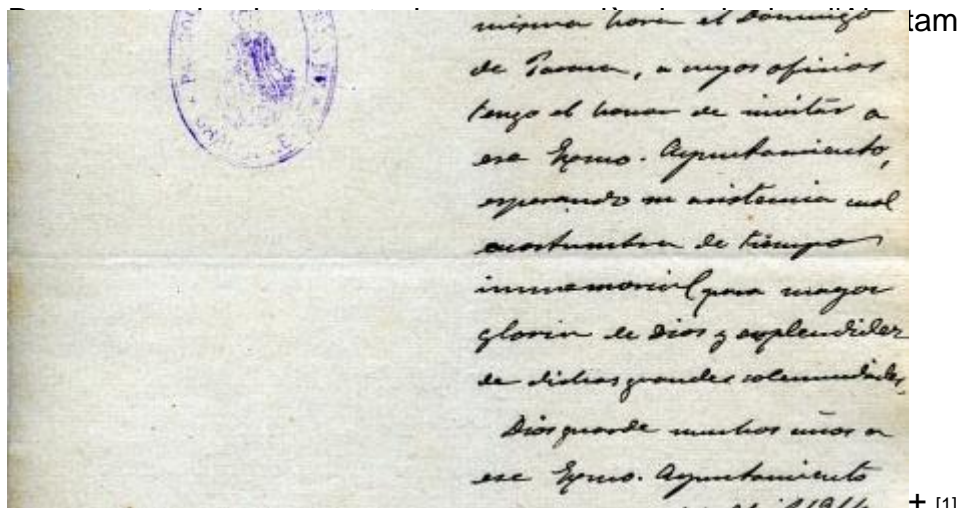 tam
misma hora el Domingo
de Pascua, a cuyos oficios
tengo el honor de invitar a
ese Exmo. Ayuntamiento,
esperando su asistencia cual
acostumbra de tiempo
inmemorial para mayor
gloria de Dios y esplendidez
de dichas grandes solemnidades,
Dios guarde muchos años a
ese Exmo. Ayuntamiento
[1]